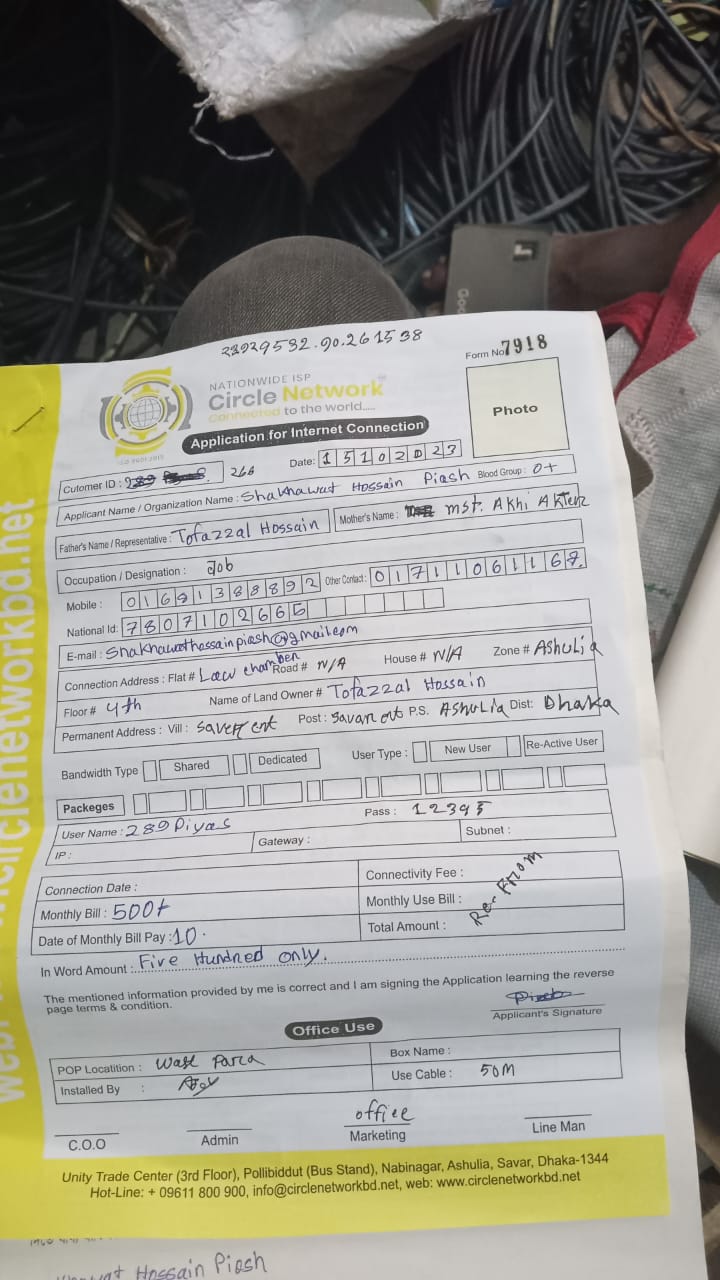 23929532.90.261538
Form No 7918
NATIONWIDE ISP
Circle Network
Connected to the world.....
ISO 9001:2015
Application for Internet Connection
Photo
Date: 15102023
Cutomer ID : 289 266
Applicant Name / Organization Name : Shakhawat Hossain Piash Blood Group : O+
Father's Name / Representative : Tofazzal Hossain Mother's Name : mst. Akhi Akter
Occupation / Designation : Job
Mobile : 01691388892 Other Contact : 01711061167
National Id: 7807102665
E-mail : Shakhawathossainpiash@gmail.com
Connection Address : Flat # Law chamber Road # N/A House # N/A Zone # Ashulia
Floor # 4th Name of Land Owner # Tofazzal Hossain
Permanent Address : Vill : Post : P.S. Ashulia Dist: Dhaka
Bandwidth Type Shared Dedicated User Type : New User Re-Active User
Packeges
User Name : 289 Piyas Pass : 12345
IP : Gateway : Subnet :
Connection Date : Connectivity Fee :
Monthly Bill : 500t Monthly Use Bill :
Date of Monthly Bill Pay : 10. Total Amount :
Re-From
In Word Amount : Five Hundred only.
The mentioned information provided by me is correct and I am signing the Application learning the reverse
page terms & condition.
Applicant's Signature
Office Use
POP Locatition : Wast Parca Box Name :
Installed By : Use Cable : 50M
office
C.O.O Admin Marketing Line Man
Unity Trade Center (3rd Floor), Pollibiddut (Bus Stand), Nabinagar, Ashulia, Savar, Dhaka-1344
Hot-Line: + 09611 800 900, info@circlenetworkbd.net, web: www.circlenetworkbd.net
circlenetworkbd.net
Hossain Piash